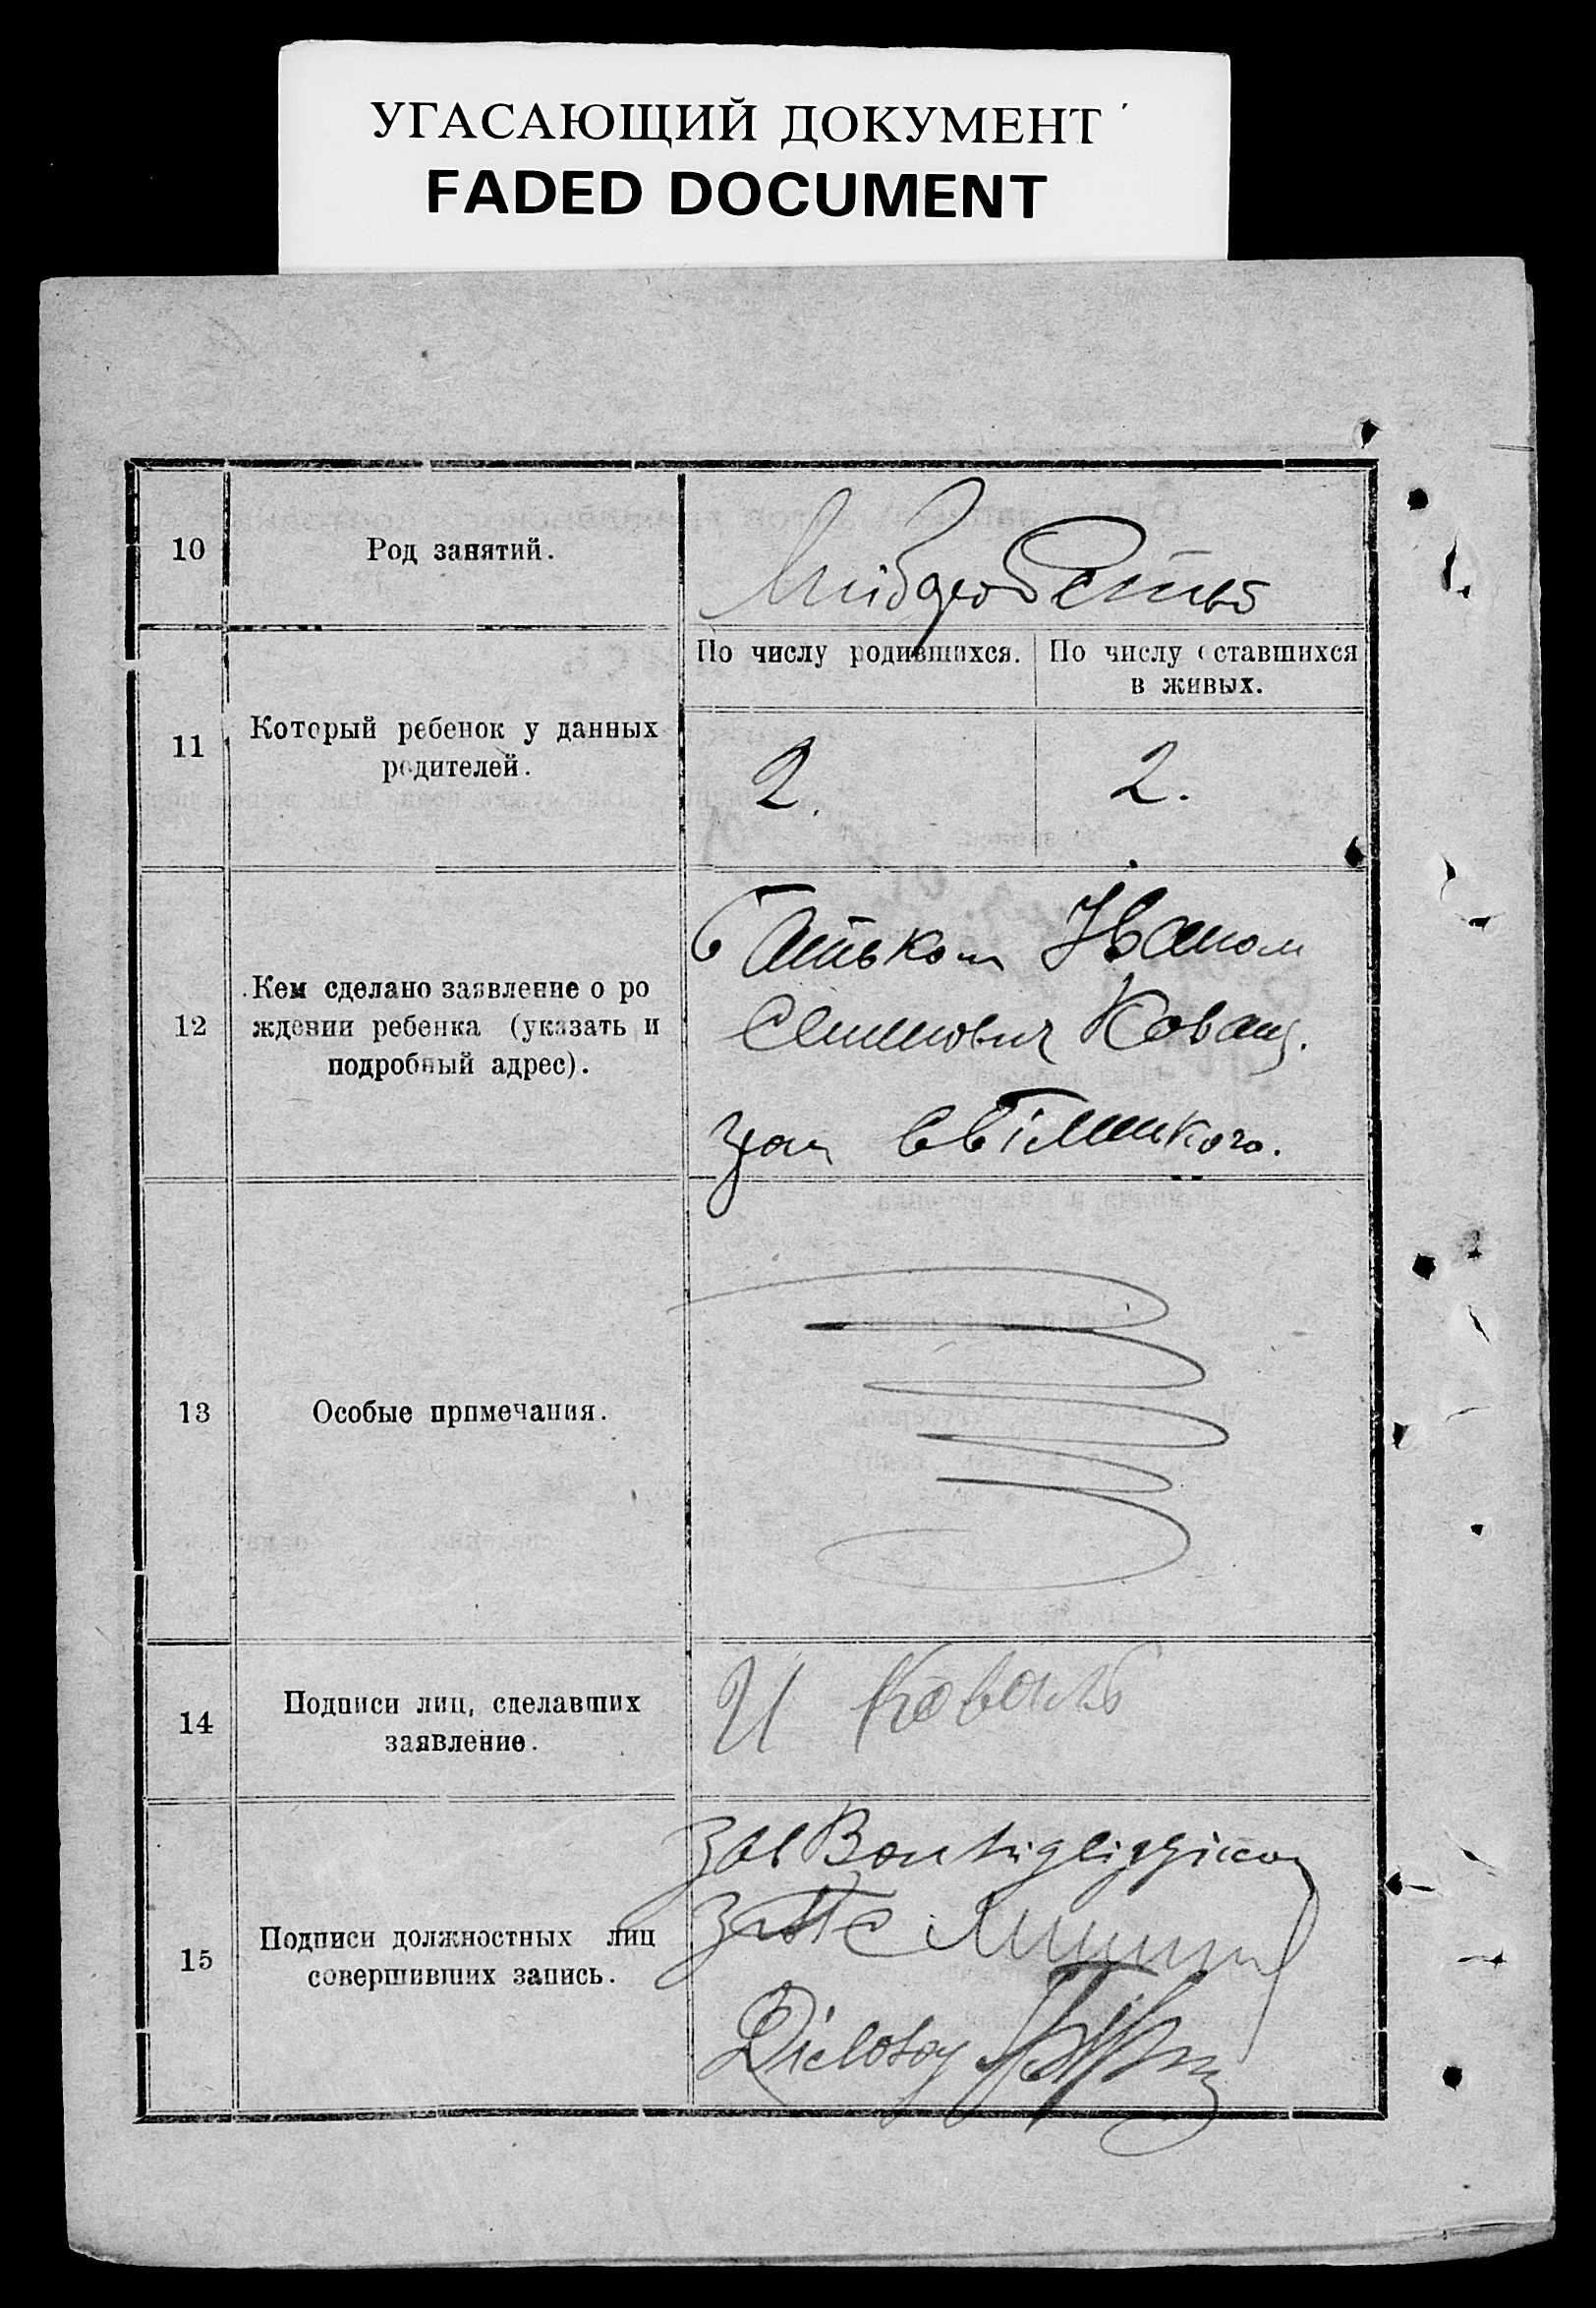 УГАСАЮЩИЙ ДОКУМЕНТ
FADED DOCUMENT
10
Род занятий.
Хлібдробство
11
Который ребенок у данных
родителей.
По числу родившихся.
По числу оставшихся
в живых.
2.
2.
12
Кем сделано заявление о ро
ждении ребенка (указать и
подробный адрес).
Батьком Іваном
Коваль.
13
Особые примечания.
14
Подписи лиц, сделавших
заявление.
И Коваль
15
Подписи должностных лиц
совершивших запись.
Зав
Діловод